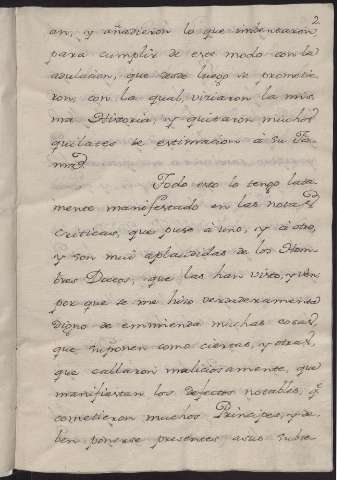 2
an, y añadieron lo que inventaron
para cumplir de ese modo con la
adulacion, que desde luego se prometie
ron, con la qual, viciaron la mis,
ma Historia, y quitaron muchos
quilates de estimacion á su Fa-
ma.
Todo esto lo tengo lata
mente manifestado en las notas
criticas, que puse á uno, y á otro,
y son mui aplaudidas de los Hom
bres Doctos, que las han visto, y ven,
por que se me hizo verdaderamente
digno de emmienda muchas cosas,
que suponen como ciertas, y otras,
que callaron maliciosamente, que
manifiestan los defectos notables, q.
cometieron muchos Principes, y de,
ben ponerse presentes asus subze-